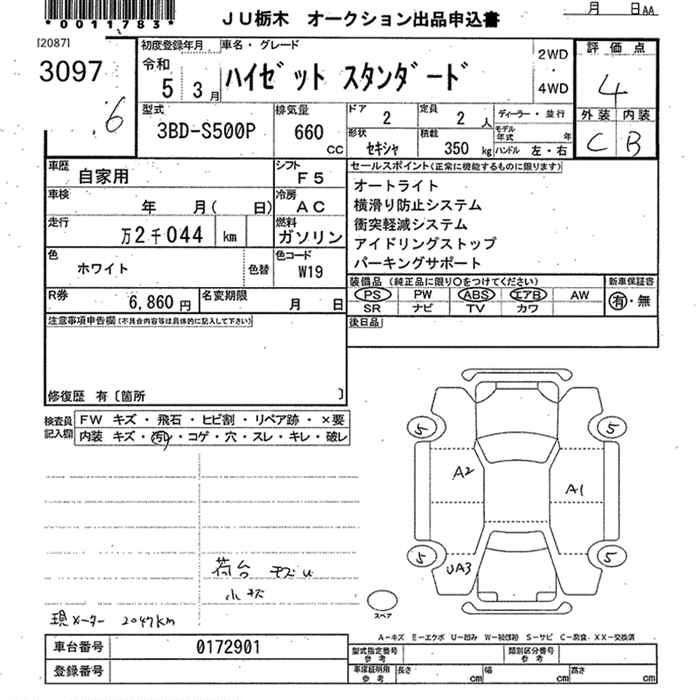 *0011783*
JU栃木 オークション出品申込書
月 日AA
[2087]
3097
.6
初度登録年月
令和
5 3月
車名・グレード
ハイゼット スタンダード
2WD
・
4WD
評価点
4
外装 内装
C B
型式
3BD-S500P
排気量
660
CC
ドア
2
定員
2人
形状
セキシャ
積載
350 kg
ディーラー・並行
モデル年式 年
ハンドル 左・右
車歴
自家用
シフト
F5
車検
年 月( 日)
冷房
AC
走行
万2千044 km
燃料
ガソリン
色
ホワイト
色替
色コード
W19
R券
6,860円
名変期限
月 日
セールスポイント(正常に機能するものに限ります)
オートライト
横滑り防止システム
衝突軽減システム
アイドリングストップ
パーキングサポート
装備品(純正品に限り○をつけてください)
PS PW ABS エアB AW
SR ナビ TV カワ
新車保証書
有・無
後日品
注意事項申告欄(不具合内容等は具体的に記入して下さい)
修復歴 有〔箇所 〕
検査員記入欄
FW キズ・飛石・ヒビ割・リペア跡・×要
内装 キズ・汚れ・コゲ・穴・スレ・キレ・破レ
5 5
A2
A1
5 5
UA3
荷台 キズU
小サビ
現メーター 2047km
スペア
A-キズ E-エクボ U-凹み W-補修跡 S-サビ C-腐食 XX-交換済
車台番号 0172901
登録番号
型式指定番号 参考
類別区分番号 参考
車庫証明用 参考
長さ cm 幅 cm 高さ cm